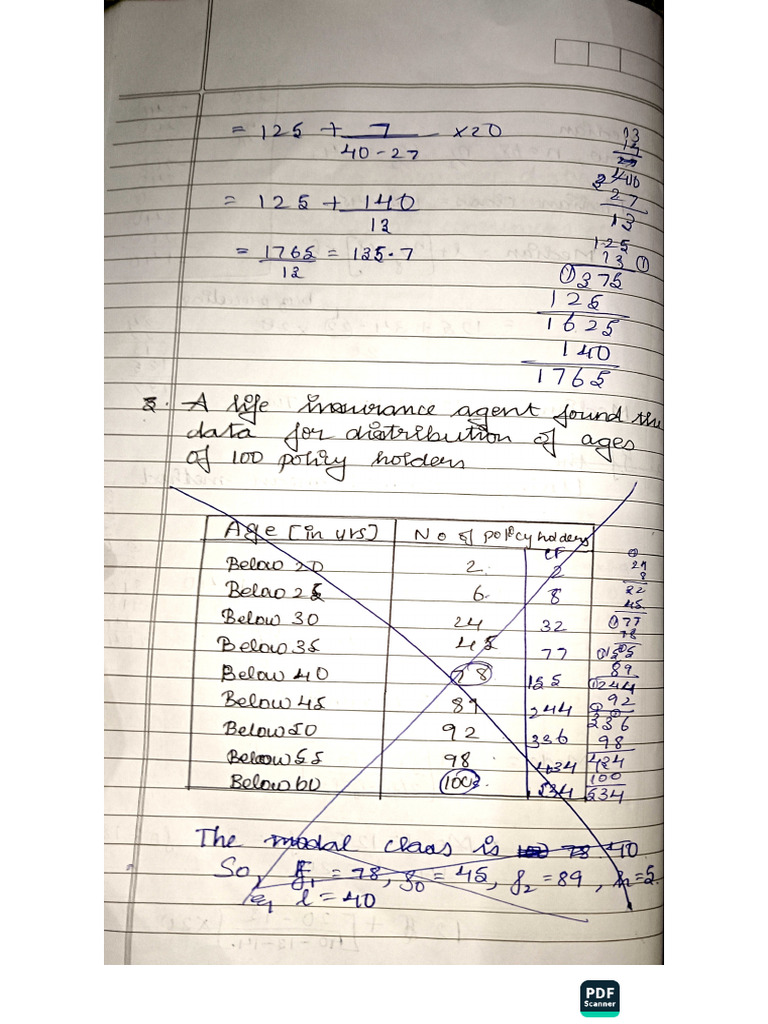 = 125 + 7 / 40-27 × 20
= 125 + 140 / 13
= 1765 / 13 = 135.7
13
400
27
13
125
13
375
125
1625
140
1765
A life insurance agent found the
data for distribution of ages
of 100 policy holders
Age [in yrs] No of policy holders cf
Below 20 2 2
Below 25 6 8
Below 30 24 32
Below 35 45 77
Below 40 78 155
Below 45 89 244
Below 50 92 336
Below 55 98 434
Below 60 100 534
24
8
32
45
77
78
155
89
244
92
336
98
434
100
534
The modal class is 100 78 40
So, f1 = 78, f0 = 45, f2 = 89, h = 5
l = 40
PDF
Scanner